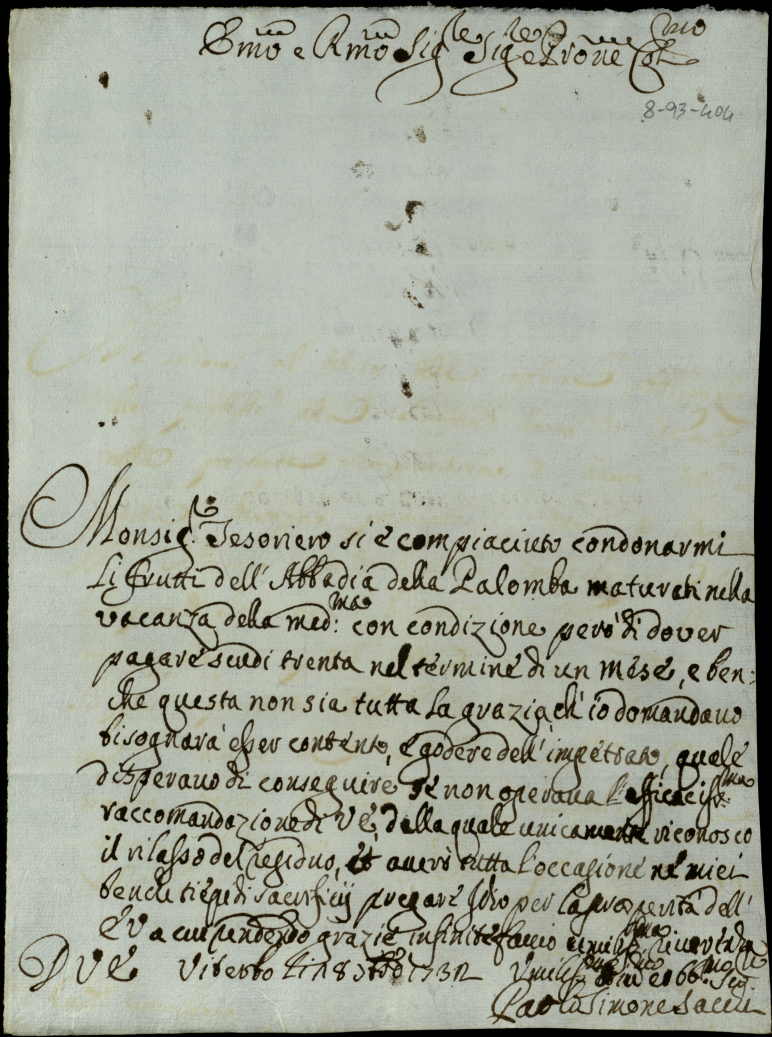 Emo e Rmo Sig.re Sig.re e Prone Col.mo
8-93-404
Monsig.r Tesoriero si è compiaciuto condonarmi
li frutti dell'Abbadia della Palomba maturati nella
vacanza della med:ma con condizione però di dover
pagare scudi trenta nel termine di un mese, e ben:
che questa non sia tutta la grazia ch'io domandavo
bisognarà esser contento, e godere dell'impetrato, quale
disperavo di conseguire se non operava l'efficaciss:ma
raccomandazione di V.E., dalla quale unicamente riconosco
il rilasso del residuo, et avero tutta l'occasione ne miei
benche tiepidi sacrificij pregare Idio per la prosperità dell'
E.V. a cui rendendo grazie infinite faccio umiliss.ma riverenza
D V E Viterbo li 18 1732 Umiliss.mo et Obb.mo Ser.
Paolo Simone